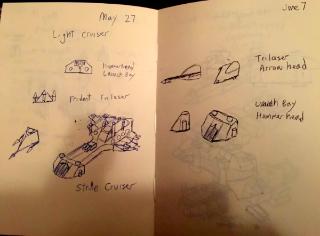 May 27
Light Cruiser
Hammerhead
Launch Bay
Trident Trilaser
Strike Cruiser
June 7
Trilaser
Arrow head
Launch Bay
Hammer head